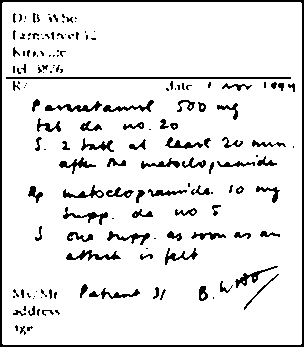 Dr B. Who
Farmstreet 12
Kirkville
tel. 3876
R/ date 1 nov 1994
Paracetamol 500 mg
tab da no. 20
S. 2 tabl at least 20 min.
after the metoclopramide
R/ metoclopramide 10 mg
supp. da no 5
S one supp. as soon as an
attack is felt
Ms/Mr Patient 31 B. WHO
address
age